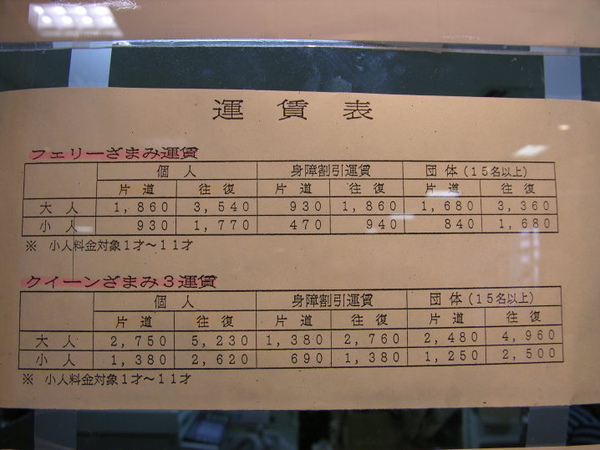 運賃表
フェリーざまみ運賃
個人 身障割引運賃 団体(15名以上)
片道 往復 片道 往復 片道 往復
大人 1,860 3,540 930 1,860 1,680 3,360
小人 930 1,770 470 940 840 1,680
※ 小人料金対象1才～11才
クイーンざまみ3運賃
個人 身障割引運賃 団体(15名以上)
片道 往復 片道 往復 片道 往復
大人 2,750 5,230 1,380 2,760 2,480 4,960
小人 1,380 2,620 690 1,380 1,250 2,500
※ 小人料金対象1才～11才